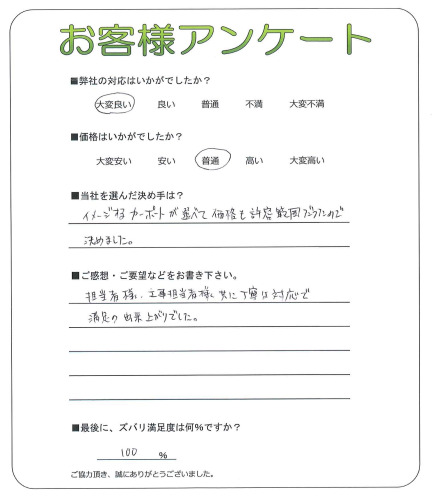 お客様アンケート
■弊社の対応はいかがでしたか？
大変良い 良い 普通 不満 大変不満
■価格はいかがでしたか？
大変安い 安い 普通 高い 大変高い
■当社を選んだ決め手は？
イメージするカーポートが選べて価格も許容範囲だったので
決めました。
■ご感想・ご要望などをお書き下さい。
担当者様、工事担当者様、共に丁寧な対応で
満足の出来上がりでした。
■最後に、ズバリ満足度は何％ですか？
100 ％
ご協力頂き、誠にありがとうございました。